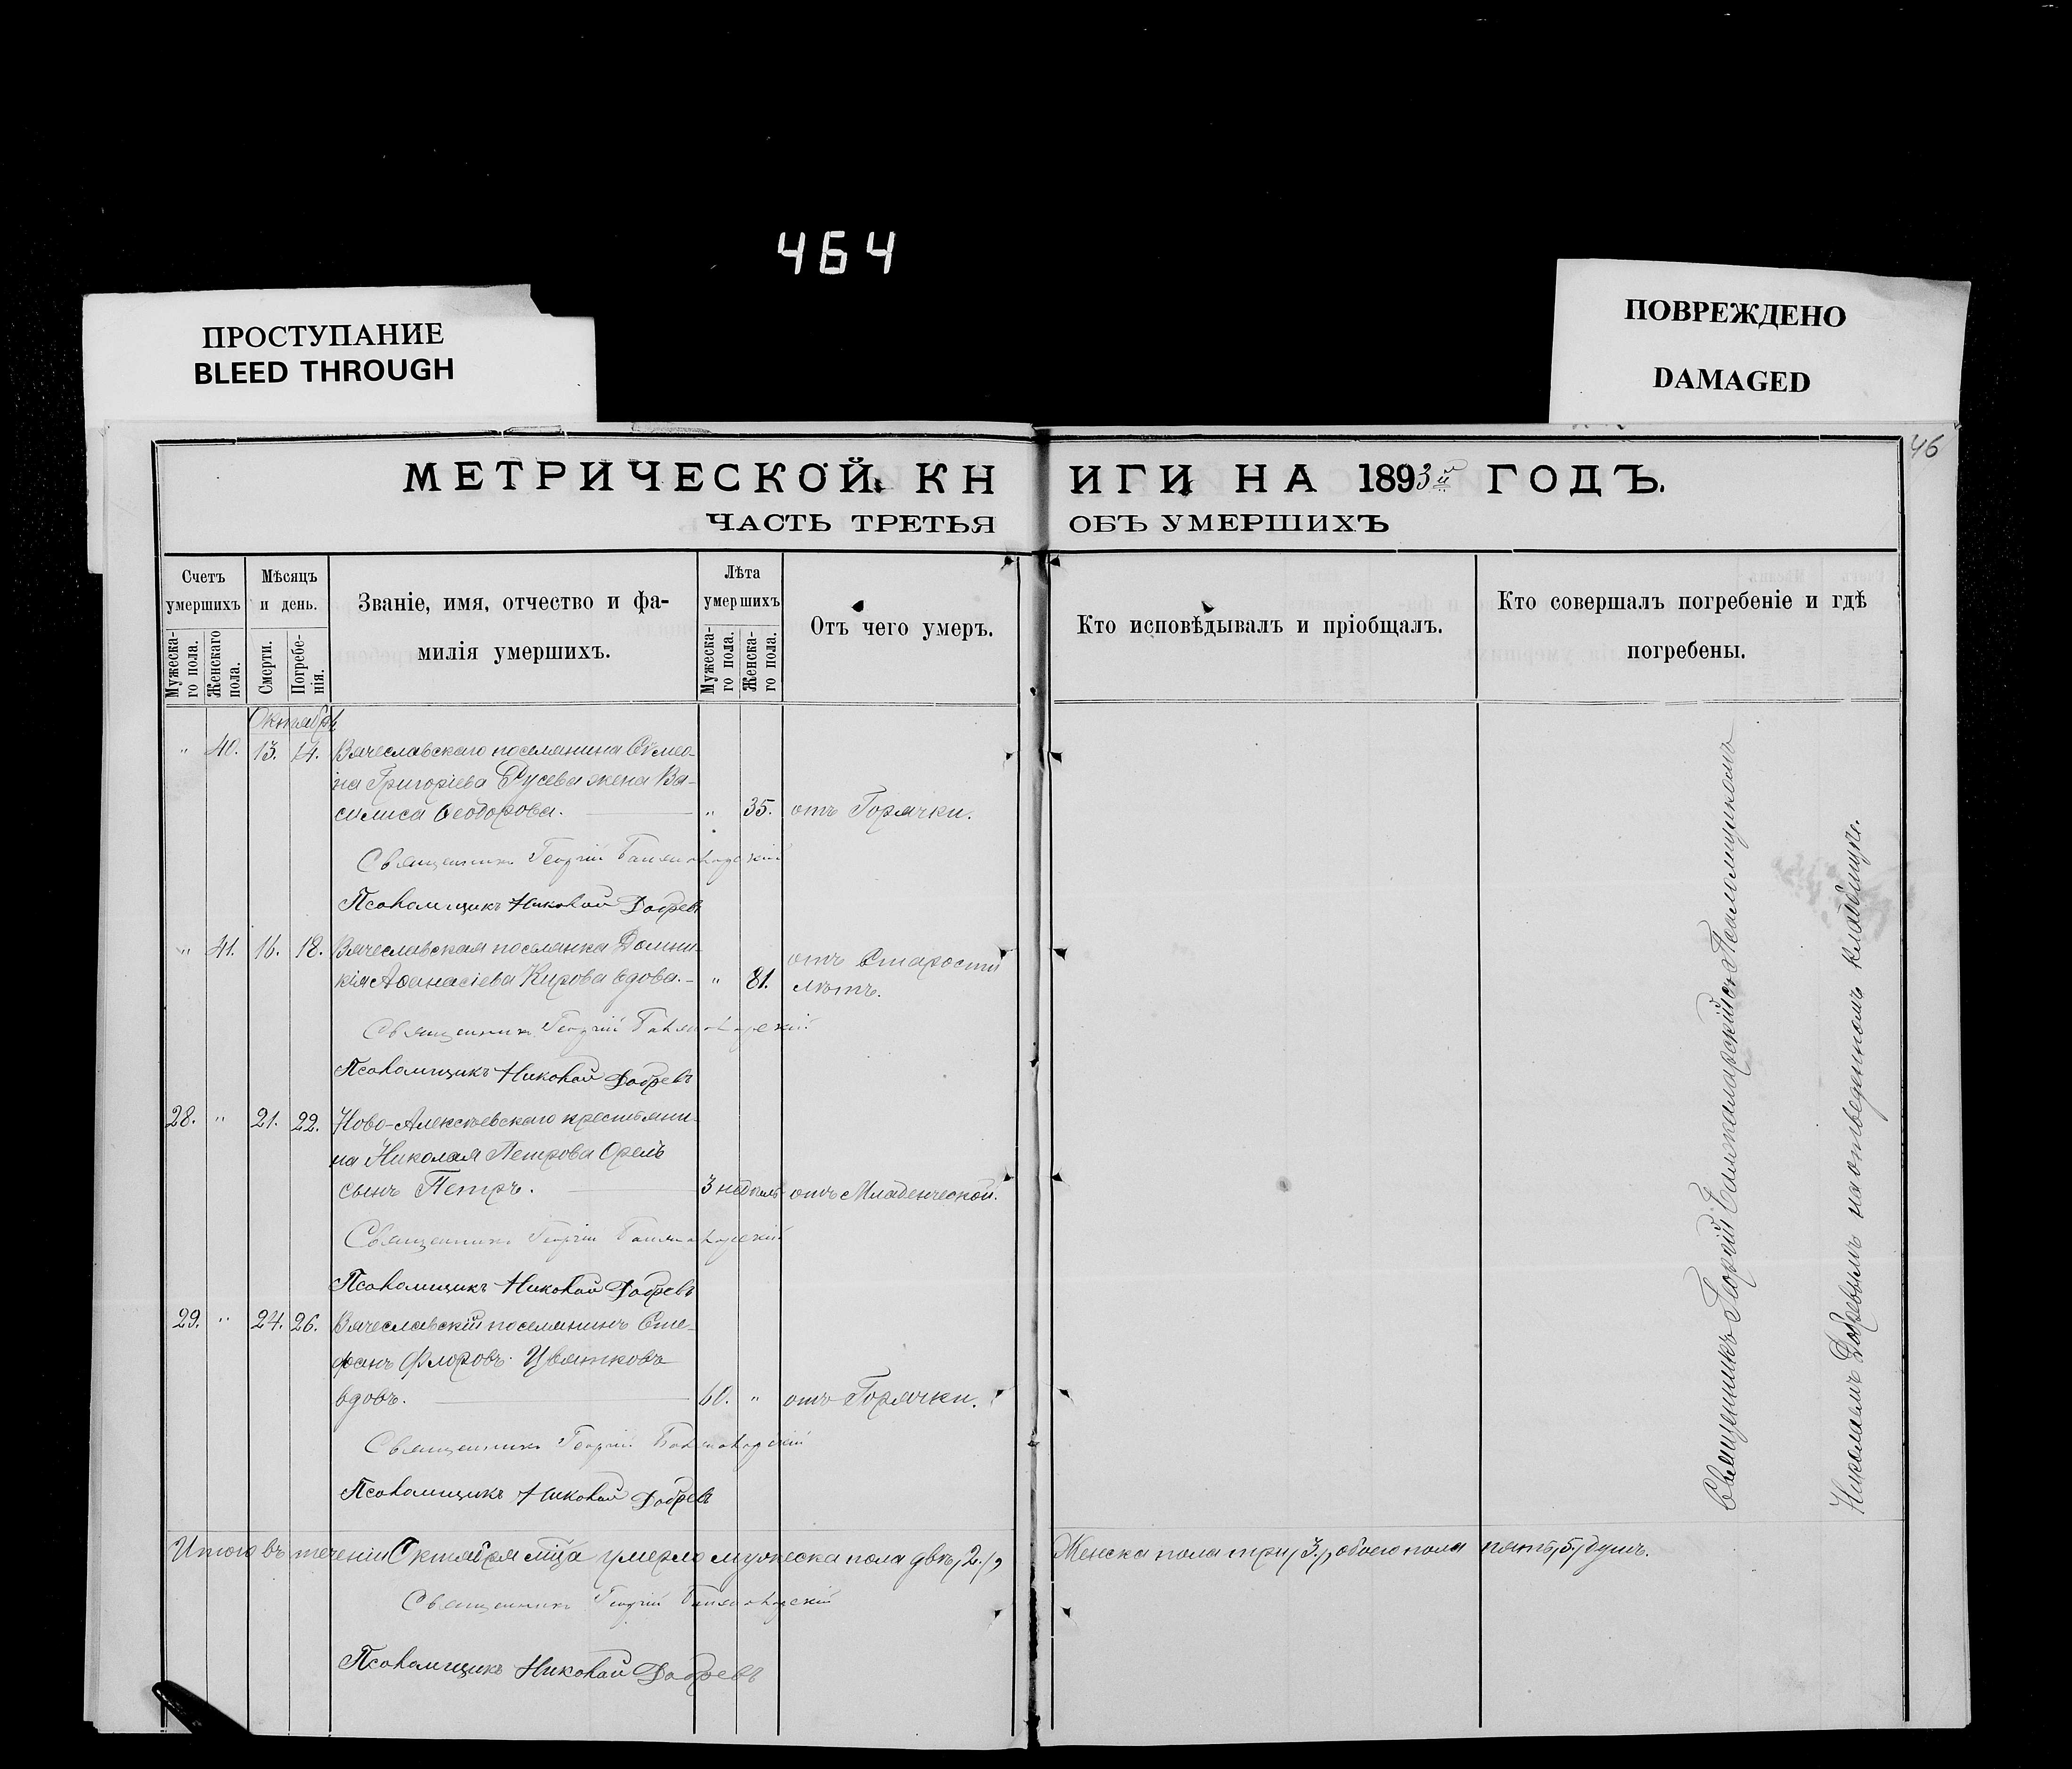 464
ПРОСТУПАНИЕ
BLEED THROUGH
ПОВРЕЖДЕНО
DAMAGED
46
МЕТРИЧЕСКОЙ КНИГИ НА 1893й ГОДЪ.
ЧАСТЬ ТРЕТЬЯ ОБЪ УМЕРШИХЪ
Счетъ умершихъ
Мужеска-го пола.
Женскаго пола.
Мѣсяцъ и день.
Смерти.
Погребе-нія.
Званіе, имя, отчество и фа-
милія умершихъ.
Лѣта умершихъ
Мужеска-го пола.
Женска-го пола.
Отъ чего умеръ.
Кто исповѣдывалъ и пріобщалъ.
Кто совершалъ погребеніе и гдѣ
погребены.
Октябрь
" 40. 13. 14. Вячеславскаго поселянина Сѵмео-
на Григоріева Русева жена Ва-
силиса Ѳеодорова. " 35. отъ Горячки.
Священникъ Георгій
Псаломщикъ Николай Добревъ
" 41. 16. 18. Вячеславская поселянка Домни-
кія Аѳанасіева Кирова вдова. " 81. отъ Старости
лѣтъ.
Священникъ Георгій
Псаломщикъ Николай Добревъ
28. " 21. 22. Ново-Алексѣевскаго крестьяни-
на Николая Петрова Орелъ
сынъ Петръ. 3 недѣль отъ Младенческой.
Священникъ Георгій
Псаломщикъ Николай Добревъ
29. " 24. 26. Вячеславскій поселянинъ Сте-
фанъ Флоровъ Цвятковъ
вдовъ. 60. " отъ Горячки.
Священникъ Георгій
Псаломщикъ Николай Добревъ
Священникъ Георгій съ Псаломщикомъ
Николаемъ Добревымъ на отведенномъ кладбищѣ.
Итого въ теченіи Октября мца умерло мужеска пола двѣ /2./, Женска пола три /3./, обоего пола пять /5./ душъ.
Священникъ Георгій
Псаломщикъ Николай Добревъ